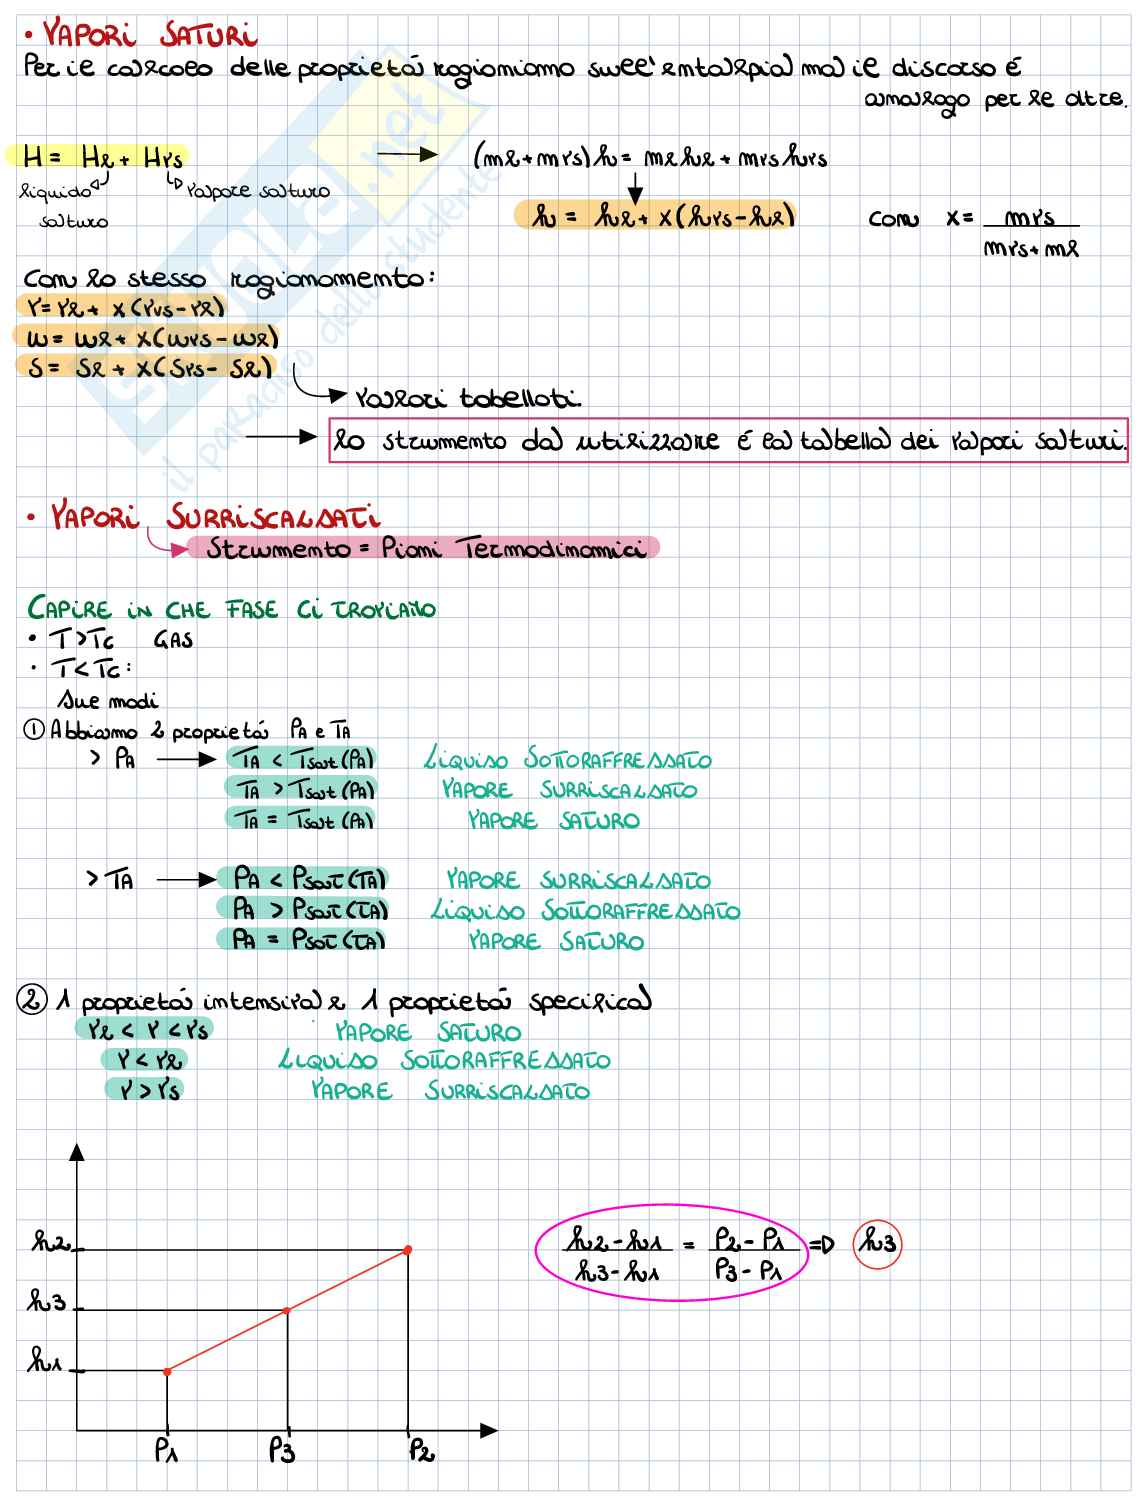 • VAPORI SATURI
Per il calcolo delle proprietá ragioniamo sull'entalpia ma il discorso é
analogo per le altre.
H = Hl + Hvs → (ml + mvs) h = ml hl + mvs hvs
liquido saturo
vapore saturo
h = hl + x (hvs - hl) con x = mvs / mvs + ml
Con lo stesso ragionamento:
v = vl + x (vvs - vl)
u = ul + x (uvs - ul)
s = sl + x (svs - sl)
valori tabellati.
→ lo strumento da utilizzare é la tabella dei vapori saturi.
• VAPORI SURRISCALDATI
Strumento = Piani Termodinamici
CAPIRE IN CHE FASE CI TROVIAMO
• T > Tc GAS
• T < Tc :
Due modi
① Abbiamo 2 proprietá PA e TA
> PA → TA < Tsat (PA) LIQUIDO SOTTORAFFREDDATO
TA > Tsat (PA) VAPORE SURRISCALDATO
TA = Tsat (PA) VAPORE SATURO
> TA → PA < Psat (TA) VAPORE SURRISCALDATO
PA > Psat (TA) LIQUIDO SOTTORAFFREDDATO
PA = Psat (TA) VAPORE SATURO
② 1 proprietá intensiva e 1 proprietá specifica
vl < v < vs VAPORE SATURO
v < vl LIQUIDO SOTTORAFFREDDATO
v > vs VAPORE SURRISCALDATO
h2
h3
h1
P1 P3 P2
h2 - h1 / h3 - h1 = P2 - P1 / P3 - P1 => h3
SKUOLA.net
il paradiso dello studente